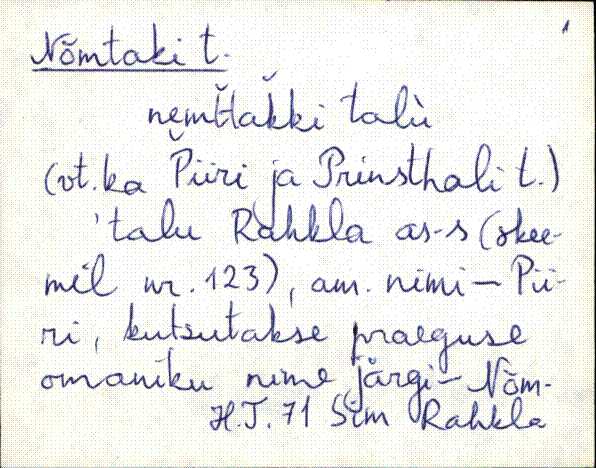 1
Nõmtaki t.
nem̆t̆ăkki talù
(vt. ka Piiri ja Prinsthali t.)
'talu Rahkla as-s (skee-
mil nr. 123), am. nimi – Pii-
ri, kutsutakse praeguse
omaniku nime järgi – Nõm-
H.J. 71 Sim Rahkla